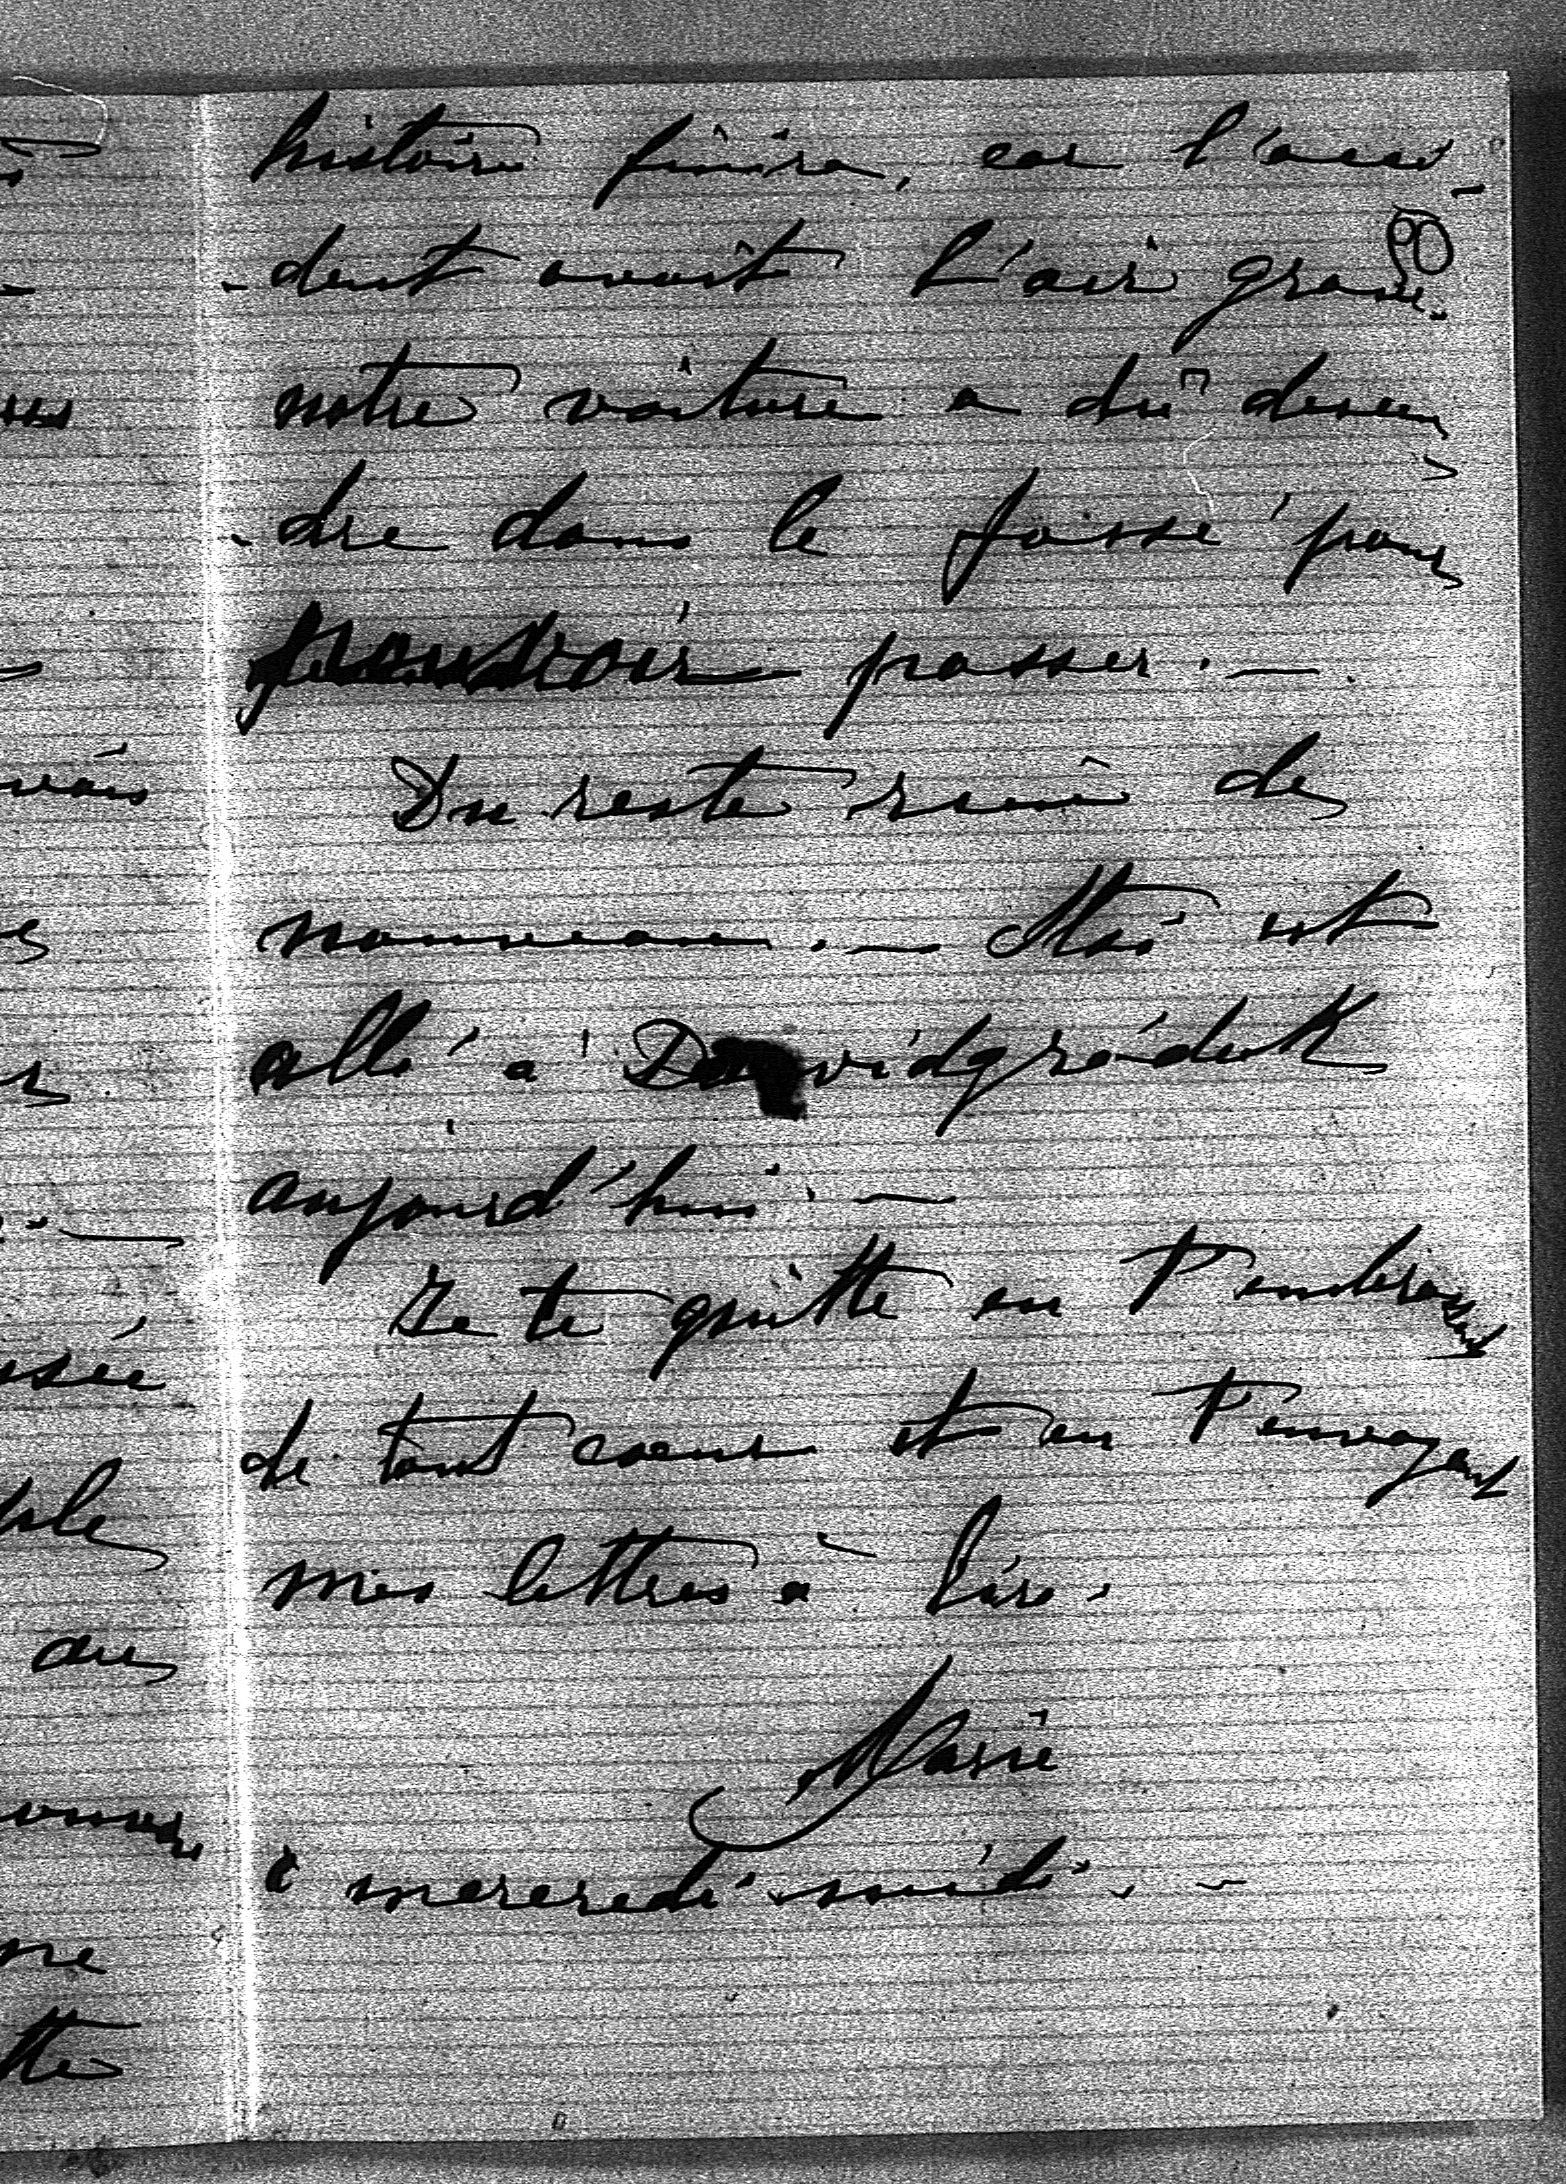 histoire finira, car l'acci-
-dent avait l'air grave.
90
notre voiture a dû descen
-dre dans le fossé pour
pouvoir passer. —
Du reste rien de
nouveau. — Stas est
allé à Davidgródek
aujourd'hui. —
Je te quitte en t'embrassant
de tout coeur et en t'envoyant
mes lettres à lire.
Marie
mercredi midi. —
vais
ssée
au
tte